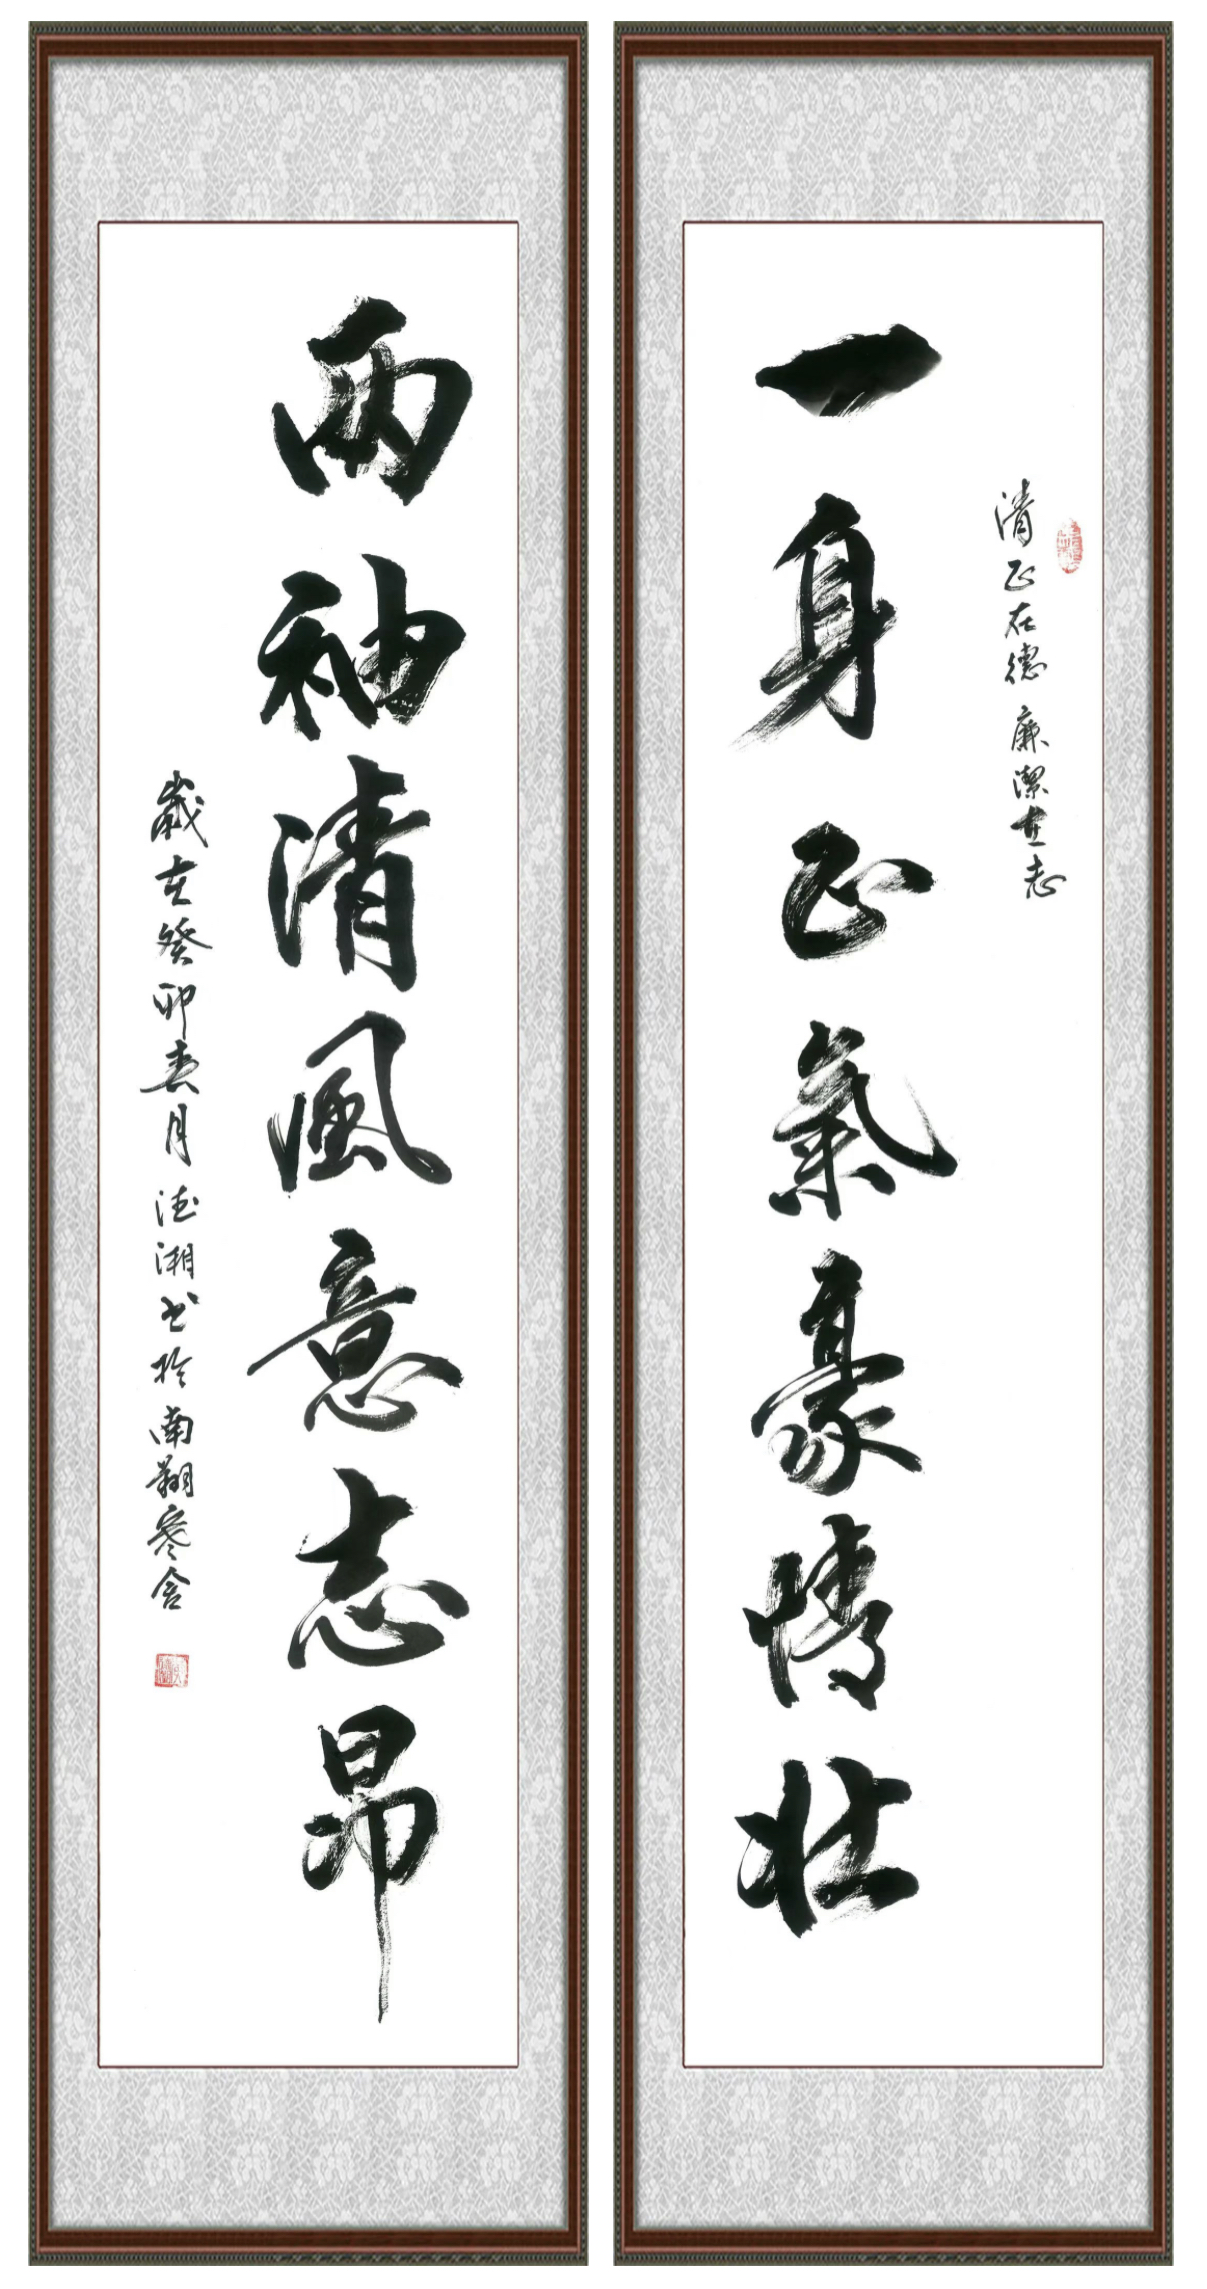 清正在德 廉潔在志
一身正氣豪情壯
兩袖清風意志昂
歲在癸卯春月德湘书於南翔寒舍